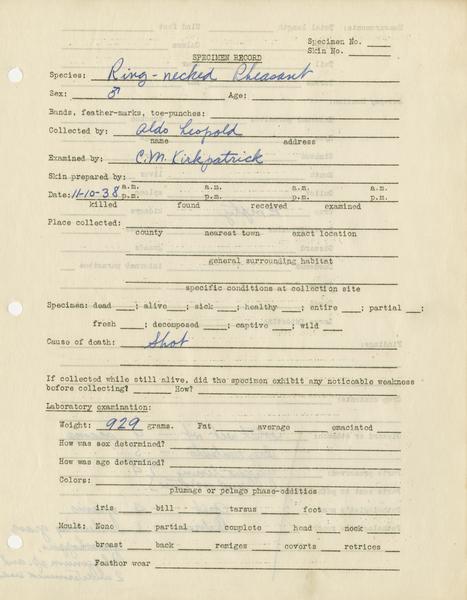 Specimen No. ____
Skin No. ____
SPECIMEN RECORD
Species: Ring-necked Pheasant
Sex: ♂ Age:
Bands, feather-marks, toe-punches:
Collected by: Aldo Leopold
name address
Examined by: C.M. Kirkpatrick
Skin prepared by:
a.m. a.m. a.m. a.m.
Date: 11-10-38 p.m. p.m. p.m. p.m.
killed found received examined
Place collected:
county nearest town exact location
general surrounding habitat
specific conditions at collection site
Specimen: dead ___; alive ___; sick ___; healthy ___; entire ___; partial ___;
fresh ___; decomposed ___; captive ___; wild ___
Cause of death: Shot
If collected while still alive, did the specimen exhibit any noticable weakness
before collecting? ____ How?
Laboratory examination:
Weight: 929 grams. Fat ____ average ____ emaciated ____
How was sex determined?
How was age determined?
Colors:
plumage or pelage phase-oddities
iris ____ bill ____ tarsus ____ foot ____
Moult: None ____ partial ____ complete ____ head ____ neck ____
breast ____ back ____ remiges ____ coverts ____ retrices ____
Feather wear